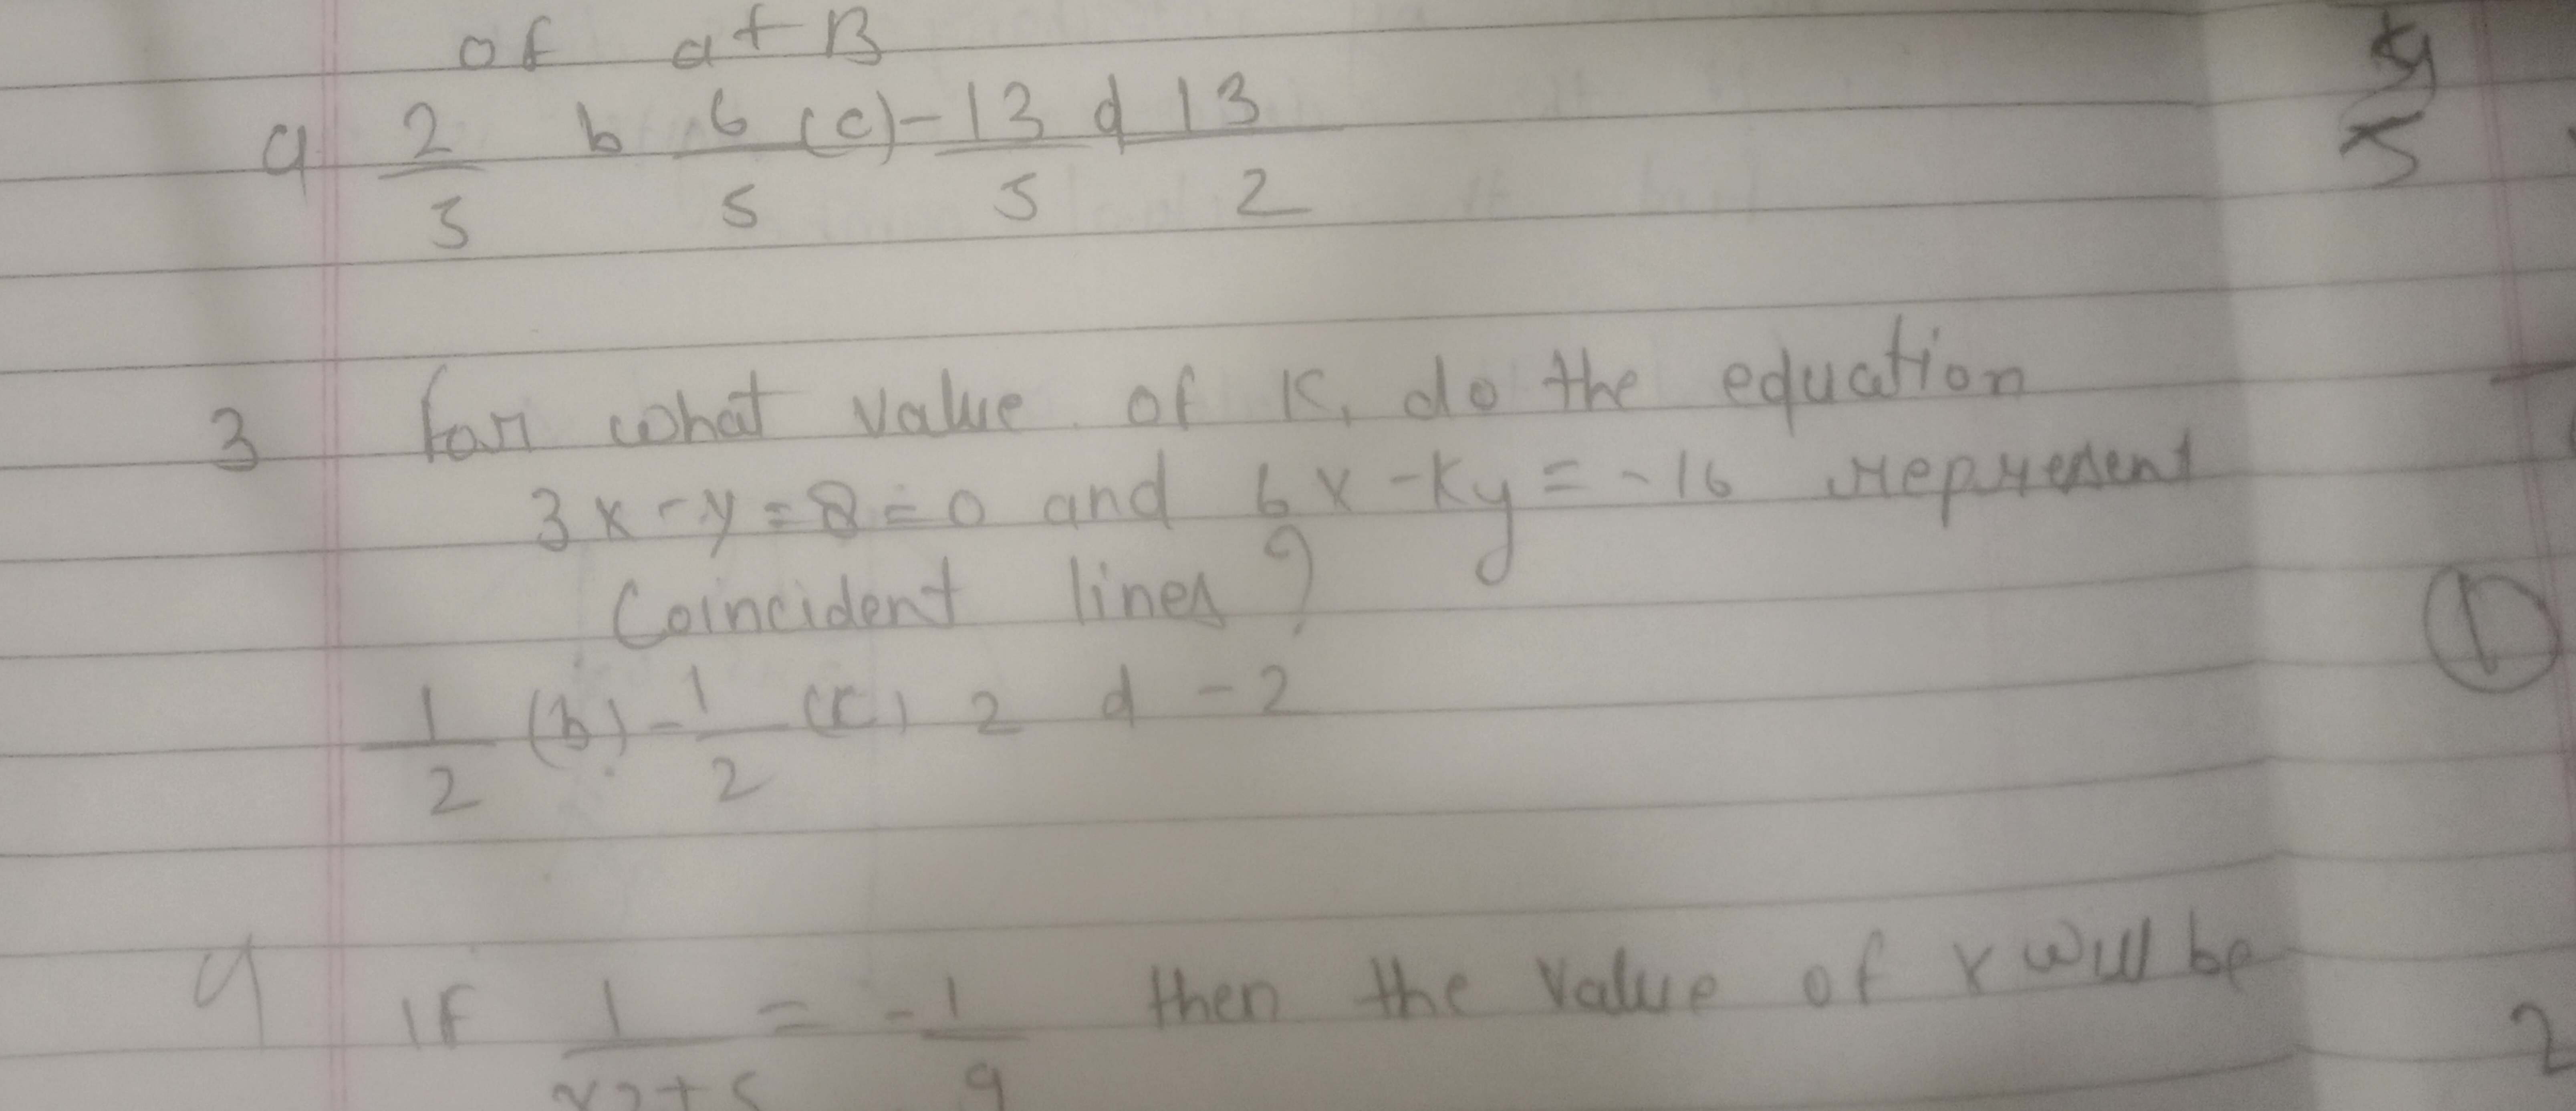 of a+B
a 2/3 b 6/5 (c) -13/5 d 13/2
3 for what value of K, do the equation
3x-y=8=0 and 6x-Ky=-16 represent
Coincident lines?
1/2 (b) -1/2 (c) 2 d -2
4 If 1/x2+5 = -1/9 then the value of x will be
5
1
2